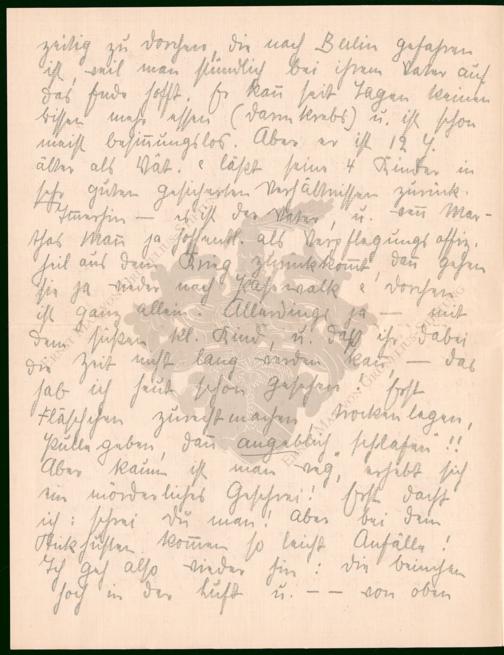 zeitig zu Dorchen, die nach Berlin gefahren
ist, weil man stündlich bei ihrem Vater auf
das Ende hofft. Er kañ seit Tagen keinen
bissen mehr essen (Darmkrebs) u. ist schon
meist besiñungslos. Aber er ist 12 J.
älter als Vát. & läßt seine 4 Kinder in
sehr guten gesicherten Verhältnissen zurück.
Imerhin — es ist der Vater, u. weñ Mar-
thas Mañ ja hoffentl. als Verpflegungsoffiz.
heil aus dem Krieg zurückkomt, dañ gehen
sie ja wieder nach Pasewalk &, Dorchen
ist ganz allein. Allerdings ja — mit
dem süßen kl. Kind, u. daß ihr dabei
die Zeit nicht lang werden kañ, — das
hab ich heut schon gesehen! Erst
Fläschchen zurechtmachen, trockenlegen,
Pulle geben, dañ angeblich "schlafen"!!
Aber kaum ist man weg, erhebt sich
ein mörderliches Geschrei! Erst dacht
ich: schrei du man! Aber bei dem
Stickhusten komen so leicht Anfälle!
Ich geh also wieder hin: die beinchen
hoch in der Luft u. — — von oben